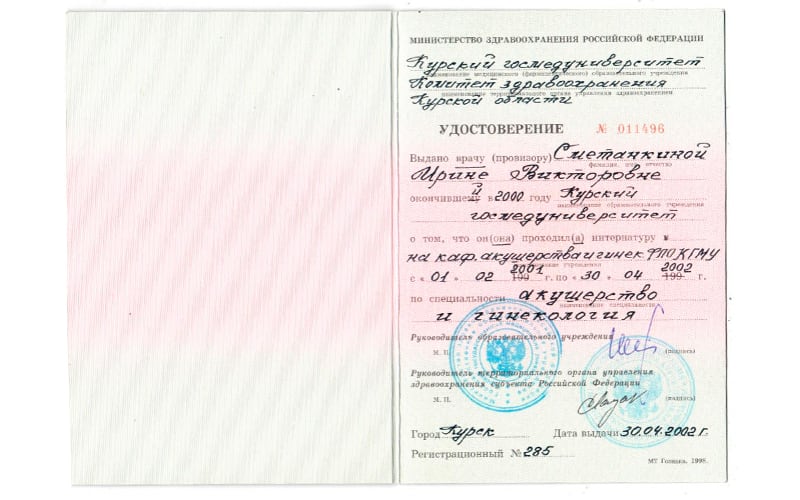 МИНИСТЕРСТВО ЗДРАВООХРАНЕНИЯ РОССИЙСКОЙ ФЕДЕРАЦИИ
Курский госмедуниверситет
наименование медицинского (фармацевтического) образовательного учреждения
Комитет здравоохранения
наименование территориального органа управления здравоохранением
Курской области
УДОСТОВЕРЕНИЕ № 011496
Выдано врачу (провизору) Сметанкиной
фамилия, имя, отчество
Ирине Викторовне
окончившему й в 2000 году Курский
наименование образовательного учреждения
госмедуниверситет
о том, что он(она) проходил(а) интернатуру в
на каф. акушерства и гинек. ФПО КГМУ
с « 01 » 02 2001 199 г. по « 30 » 04 2002 199 г.
по специальности акушерство
наименование специальности
и гинекология
Руководитель образовательного учреждения
М. П. (подпись)
Руководитель территориального органа управления
здравоохранения субъекта Российской Федерации
М. П. (подпись)
Город Курск Дата выдачи 30.04.2002 г.
Регистрационный № 285
МТ Гознака. 1998.